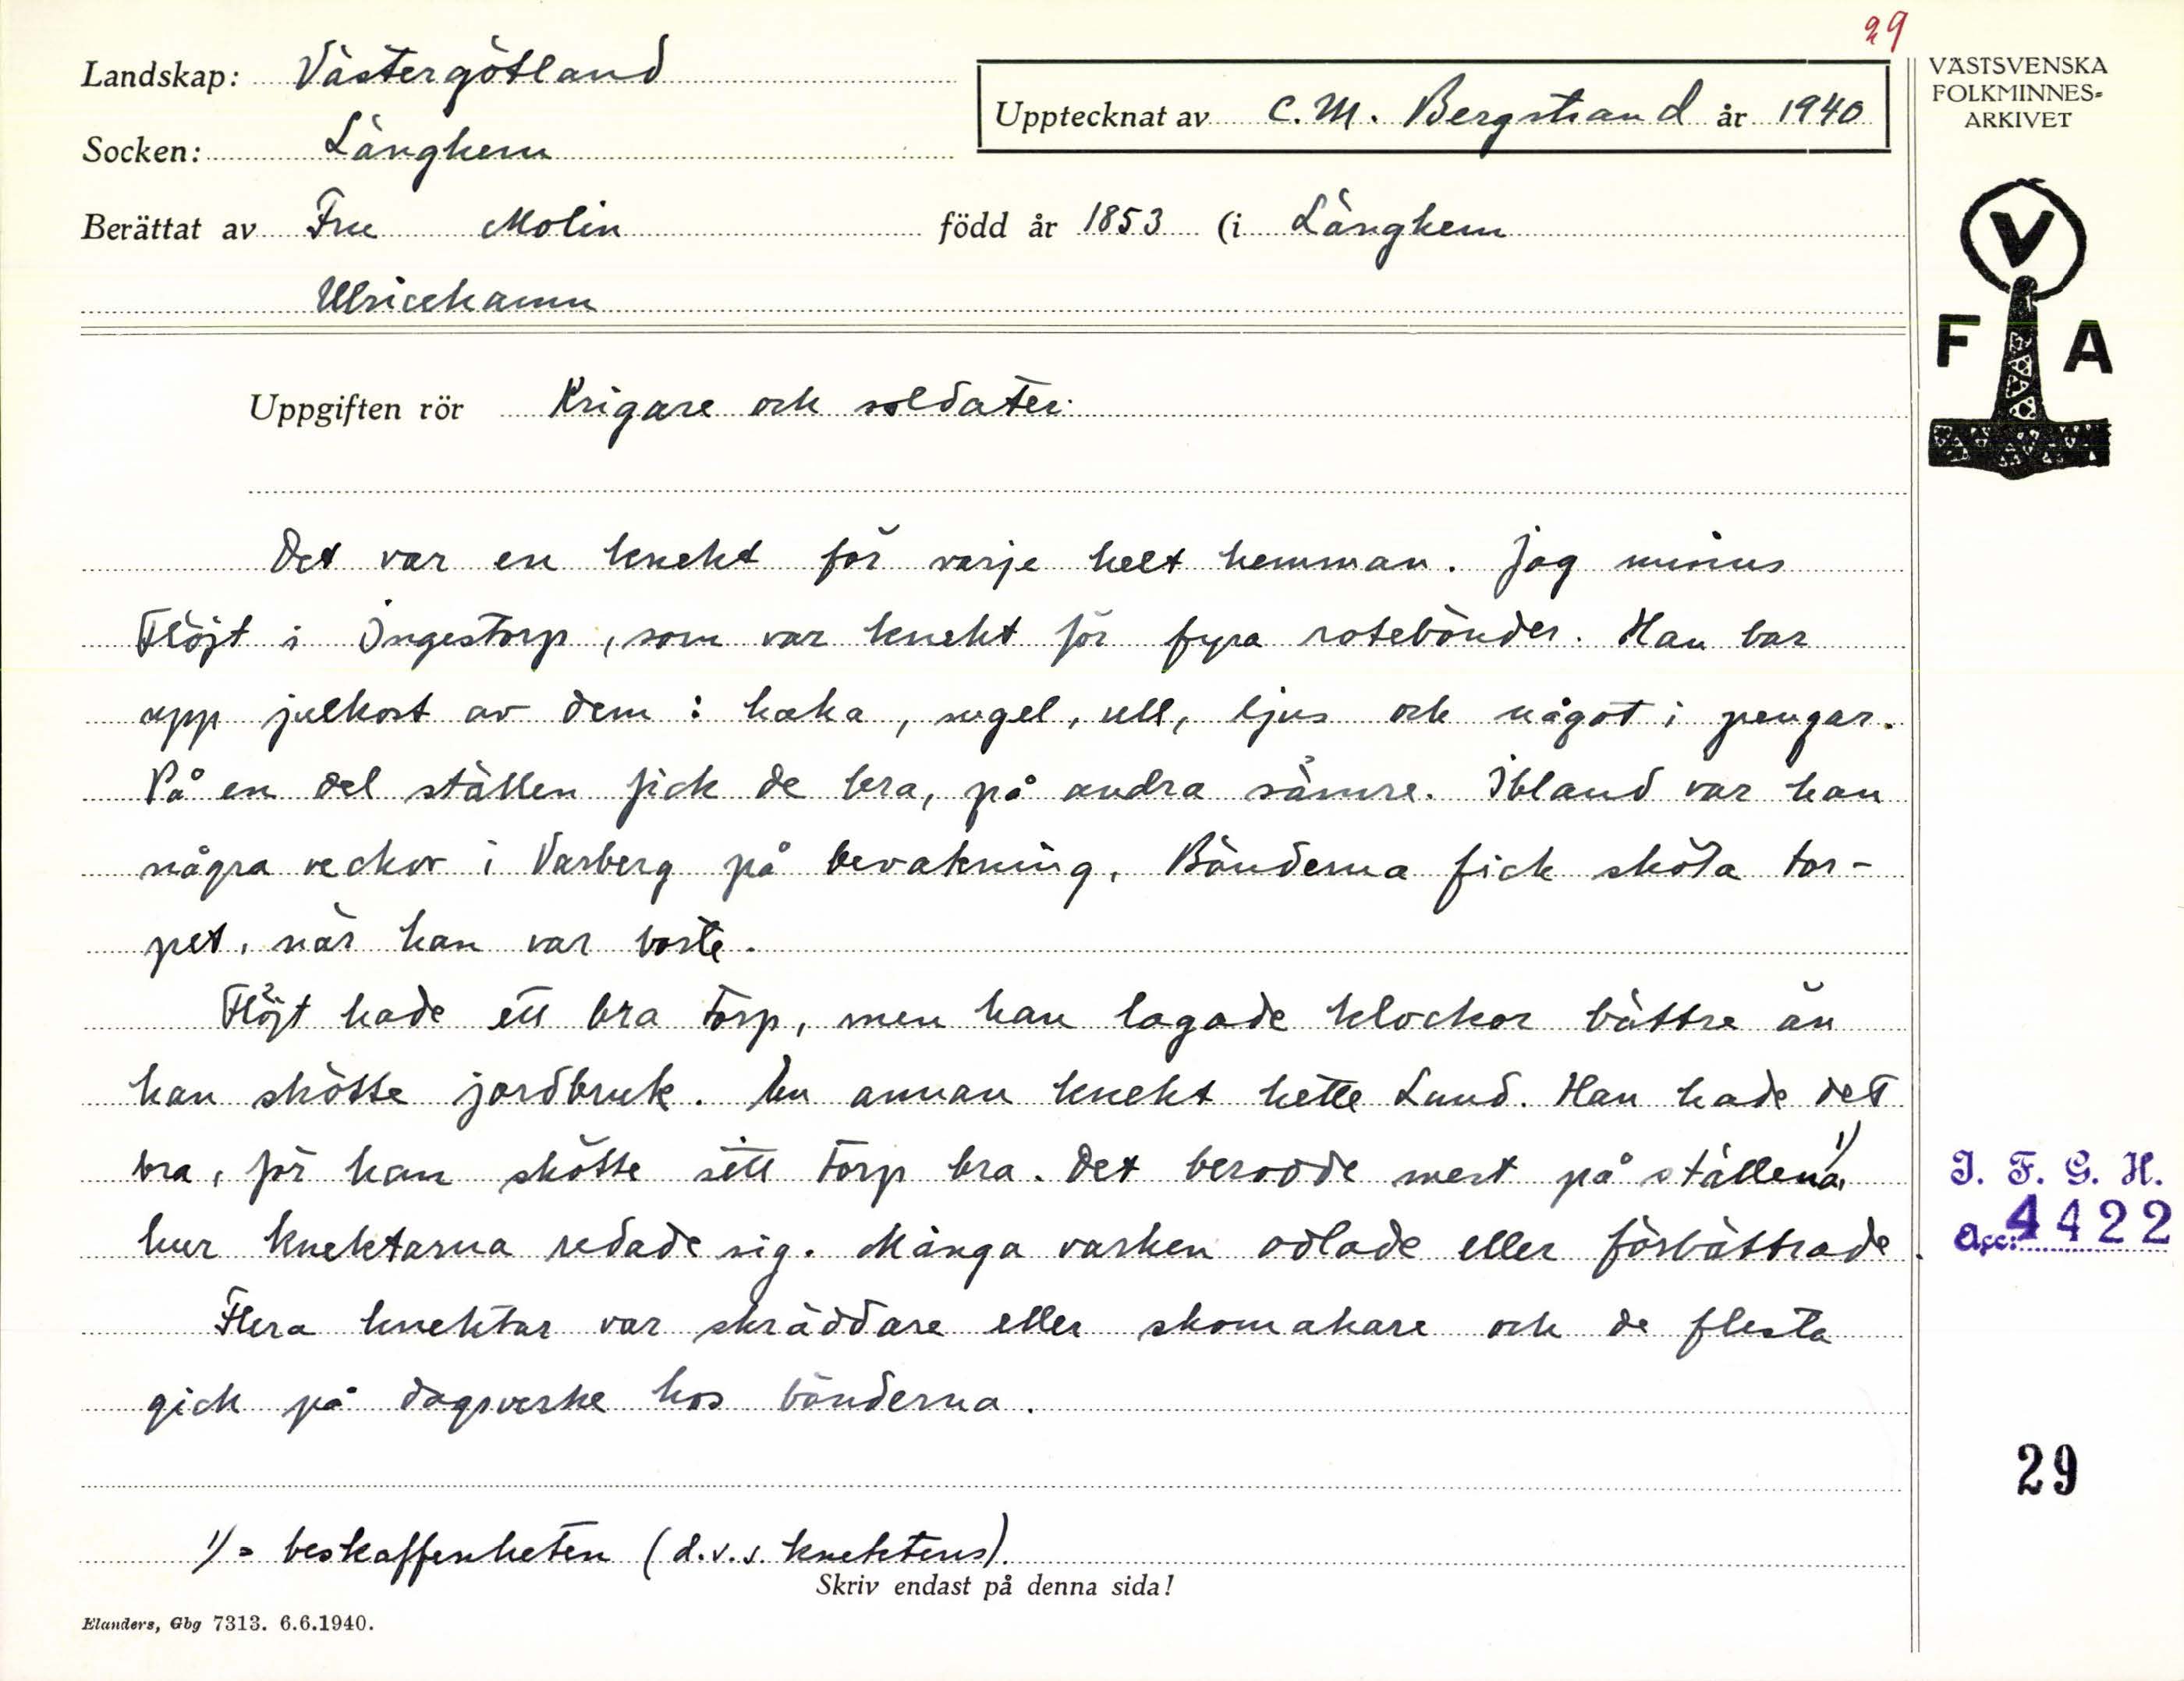 29
Landskap: Västergötland
Upptecknat av C. M. Bergstrand år 1940
Socken: Länghem
Berättat av Fru Molin född år 1853 (i Länghem
Ulricehamn
VÄSTSVENSKA
FOLKMINNES-
ARKIVET
V
F A
Uppgiften rör Krigare och soldater.
Det var en knekt för varje helt hemman. Jag minns
Flöjt i Ingestorp, som var knekt för fyra rotebönder. Han bar
upp julkost av dem: kaka, sugel, ull, ljus och något i pengar.
På en del ställen fick de bra, på andra sämre. Ibland var han
några veckor i Varberg på bevakning. Bönderna fick sköta tor-
pet, när han var borte.
Flöjt hade ett bra torp, men han lagade klockor bättre än
han skötte jordbruk. En annan knekt hette Lund. Han hade det
bra, för han skötte sitt torp bra. Det berodde mest på ställena, 1)
hur knektarna redade sig. Många varken odlade eller förbättrade.
Flera knektar var skräddare eller skomakare och de flesta
gick på dagsverke hos bönderna.
1) = beskaffenheten (d.v.s. knektens).
Skriv endast på denna sida!
Elanders, Gbg 7313. 6.6.1940.
I. F. G. H.
Acc: 4422
29